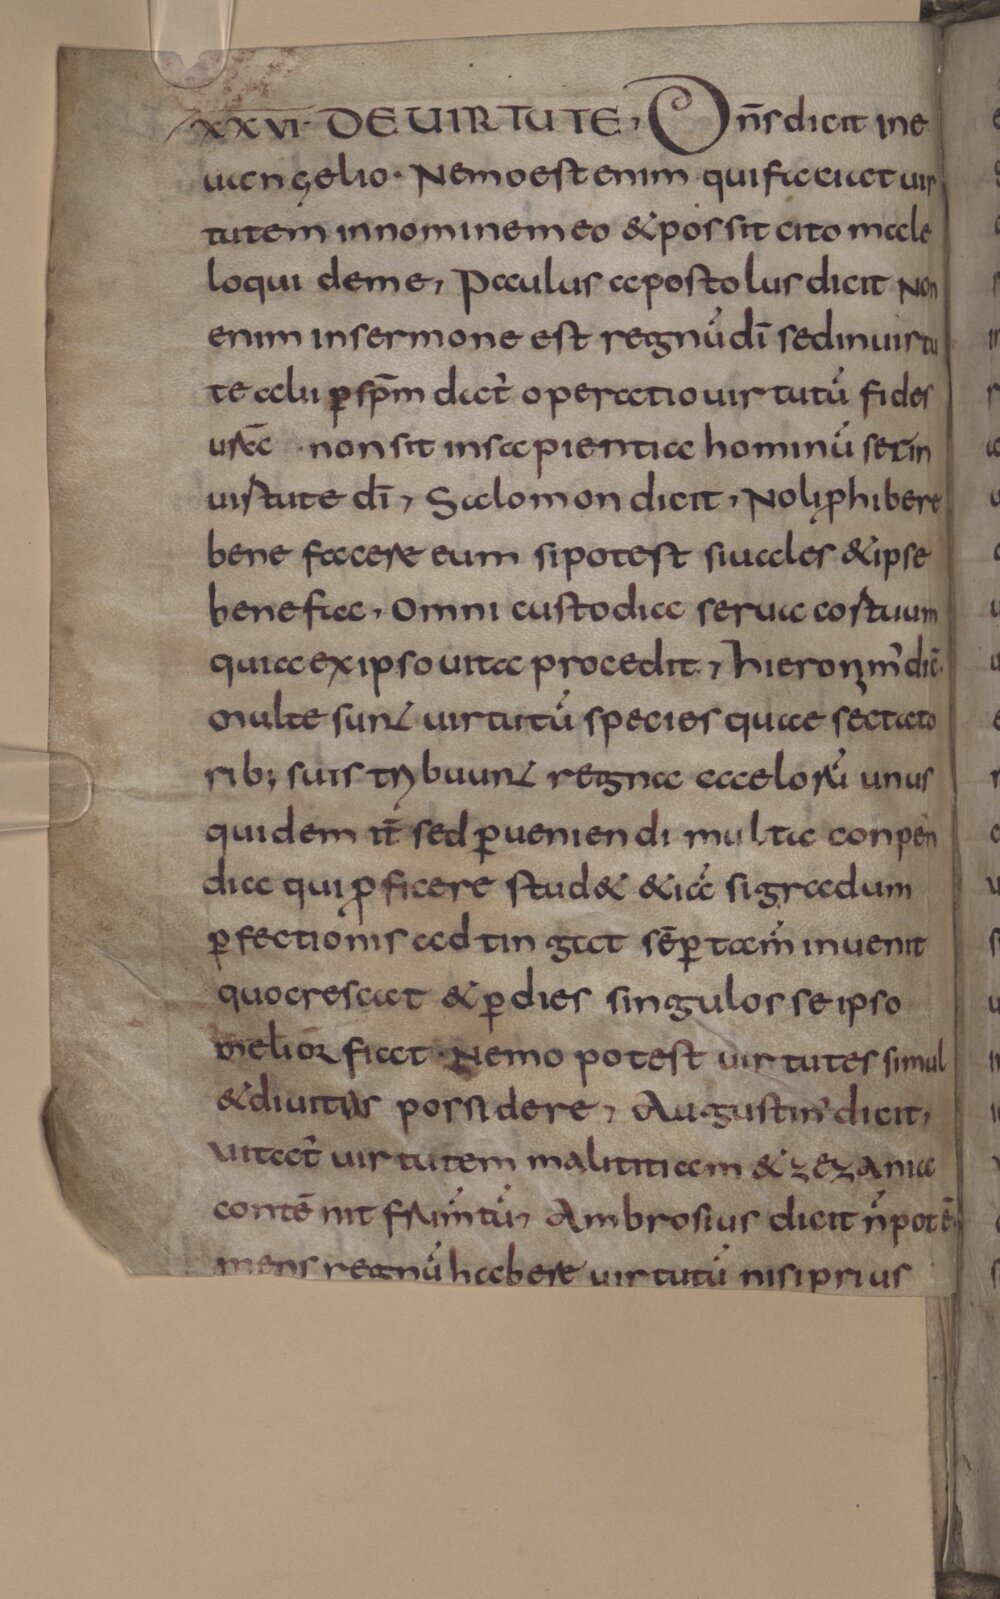 XXVI· DE UIRTUTE, Dn̄s dicit in e
uangelio· Nemo est enim qui faciat uir
tutem in nomine meo & possit cito male
loqui de me, Paulus apostolus dicit Non
enim in sermone est regnū dī sed in uirtu
te alii ꝑ sp̄m dat̉ operatio uirtutū fides
ur̄a non sit in sapientia hominū set in
uirtute dī, Salomon dicit, Noli ꝓhibere
bene facere eum si potest si uales & ipse
benefac, Omni custodia serua cor tuum
quia ex ipso uita procedit, Hieronim᾽ dic̄·
Multe sunt uirtutū species quae sectato
rib; suis tribuunt regna caelorū unus
quidem it̄ sed ꝑueniendi multa conpen
dia qui ꝓficere stud& & iā si gradum
ꝑfectionis adtingat sēꝑ tam̄ inuenit
quo crescat & ꝑ dies singulos se ipso
melior fiat· Nemo potest uirtutes simul
& diuitias possidere, Augustin᾽ dicit,
uitat̉ uirtutem malititiam & zezania
contēnit frum̄tū, Ambrosius dicit n̄ potē·
mens regnū habere uirtutū nisi prius